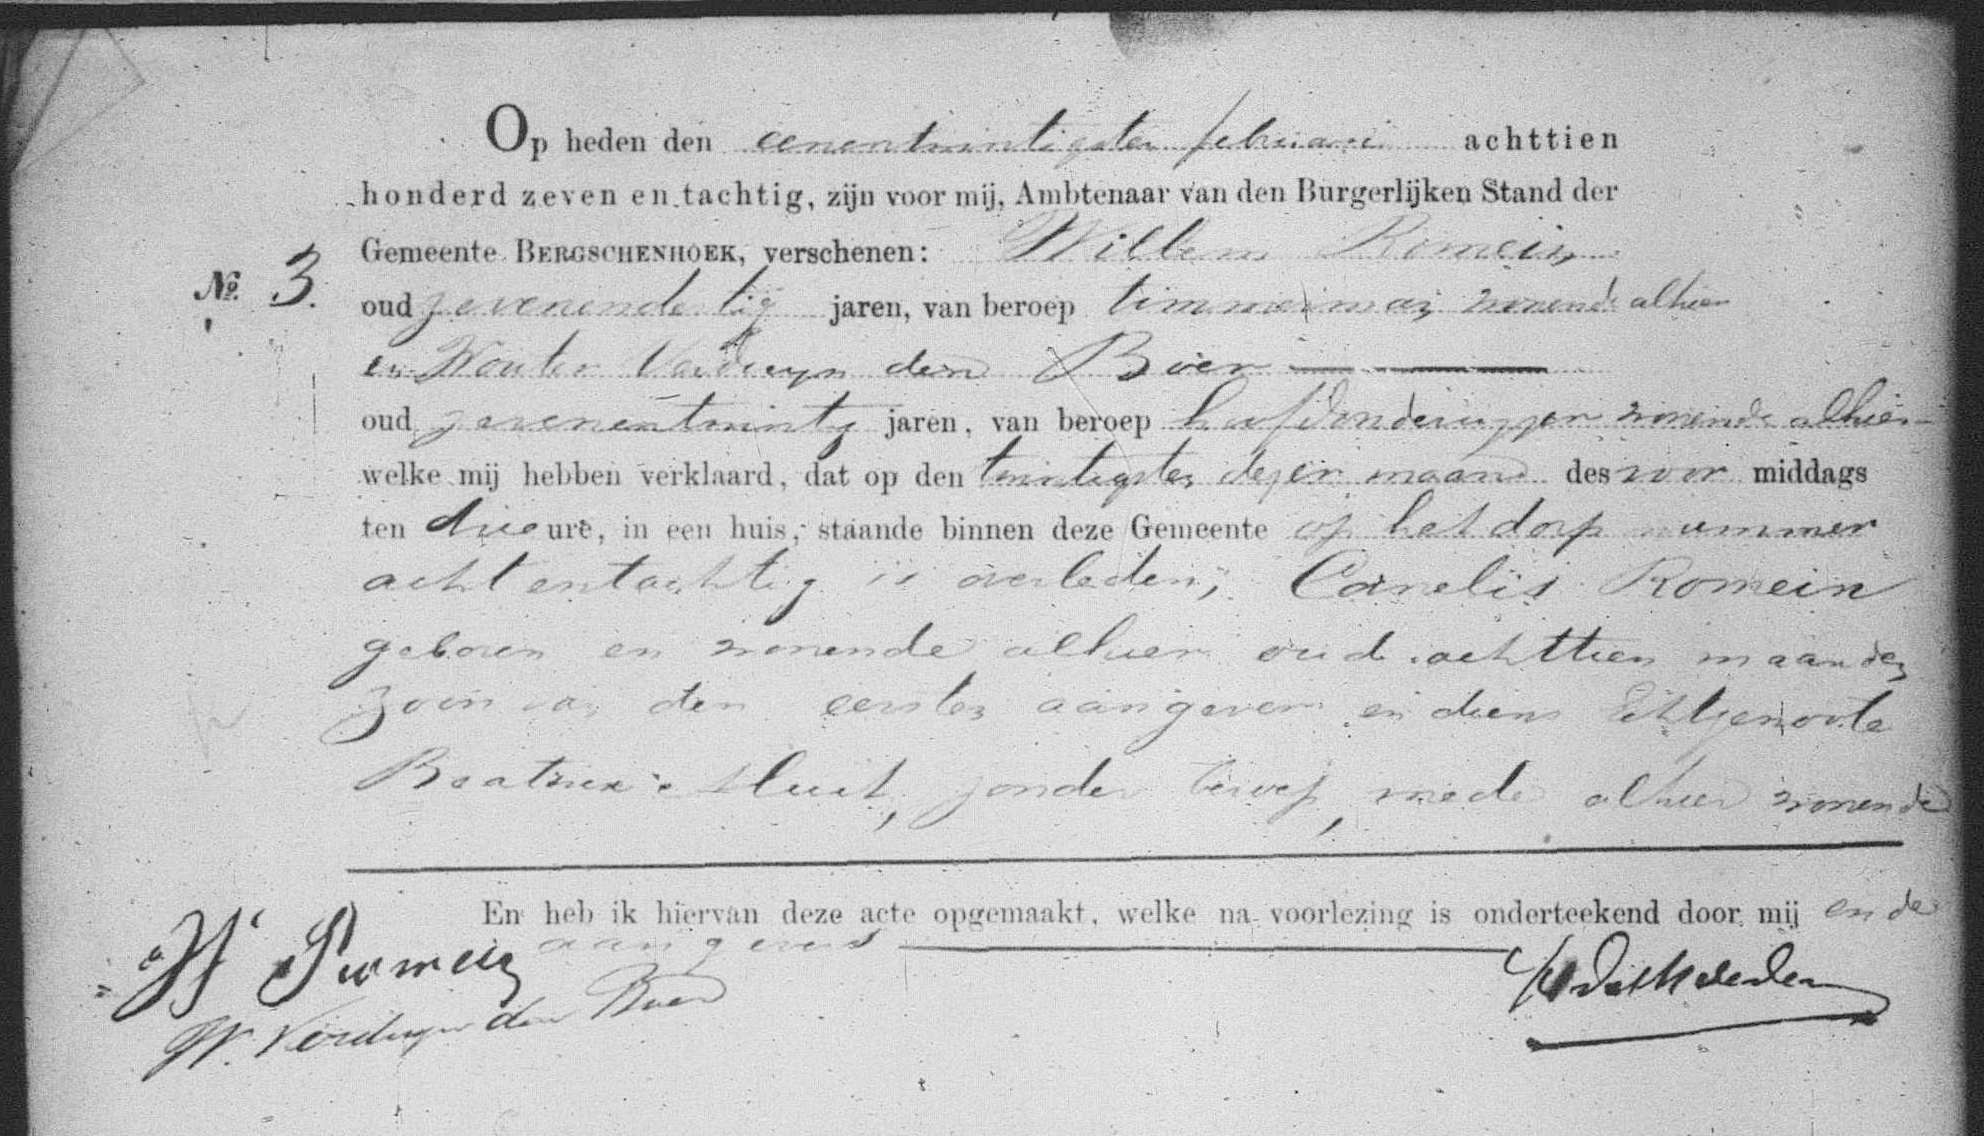 Op heden den eenentwintigsten februari achttien
honderd zeven en tachtig, zijn voor mij, Ambtenaar van den Burgerlijken Stand der
Gemeente BERGSCHENHOEK, verschenen: Willem Romein
No. 3. oud zevenendertig jaren, van beroep timmerman, wonende alhier
en Wouter Verduyn den Boer
oud zevenentwintig jaren, van beroep hoofdonderwyzer wonende alhier
welke mij hebben verklaard, dat op den twintigsten dezer maand des voor middags
ten drie ure, in een huis, staande binnen deze Gemeente op het dorp nummer
achtentachtig is overleden, Cornelis Romein
geboren en wonende alhier oud achttien maanden
zoon van den eersten aangever en diens Echtgenoote
Beatrix Sluit, zonder beroep, mede alhier wonende
En heb ik hiervan deze acte opgemaakt, welke na voorlezing is onderteekend door mij en de
aangevers
W Romein
W. Verduyn den Boer